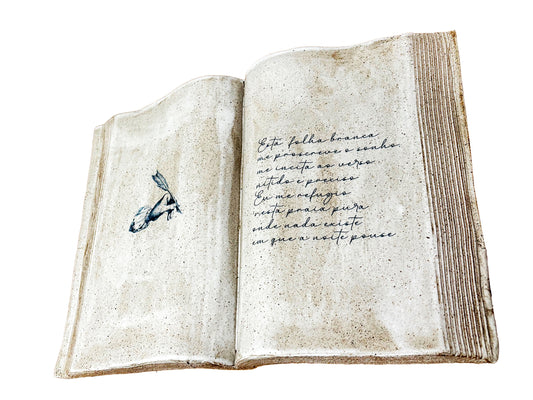 Esta folha branca
me proscreve o sonho
me incita ao verso
nítido e preciso
Eu me refugio
nesta praia pura
onde nada existe
em que a noite pouse